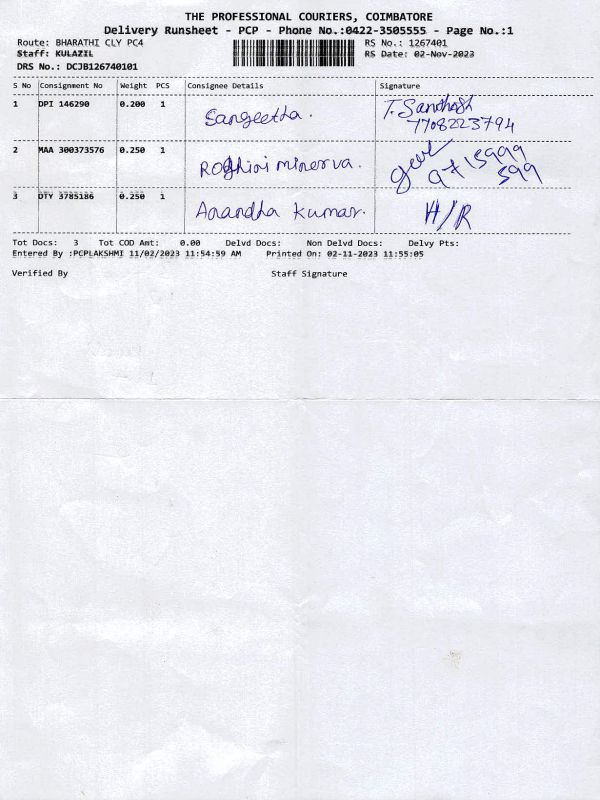 THE PROFESSIONAL COURIERS, COIMBATORE
Delivery Runsheet - PCP - Phone No.:0422-3505555 - Page No.:1
Route: BHARATHI CLY PC4 RS No.: 1267401
Staff: KULAZIL RS Date: 02-Nov-2023
DRS No.: DCJB126740101
S No Consignment No Weight PCS Consignee Details Signature
1 DPI 146290 0.200 1 Sangeetha. T. Santhosh
7708223794
2 MAA 300373576 0.250 1 Roghini minerva.
599
3 DTY 3785186 0.250 1 Anandha kumar. H/R
Tot Docs: 3 Tot COD Amt: 0.00 Delvd Docs: Non Delvd Docs: Delvy Pts:
Entered By :PCPLAKSHMI 11/02/2023 11:54:59 AM Printed On: 02-11-2023 11:55:05
Verified By Staff Signature